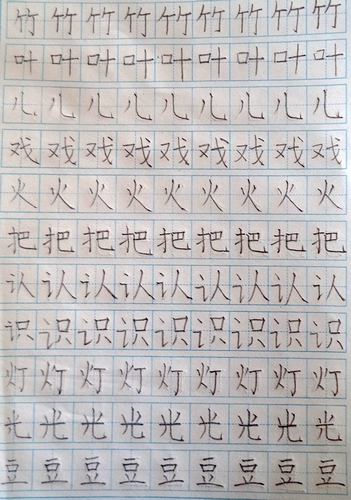 竹竹竹竹竹竹竹竹竹
叶叶叶叶叶叶叶叶叶
儿儿儿儿儿儿儿儿儿
戏戏戏戏戏戏戏戏戏
火火火火火火火火火
把把把把把把把把把
认认认认认认认认认
识识识识识识识识识
灯灯灯灯灯灯灯灯灯
光光光光光光光光光
豆豆豆豆豆豆豆豆豆